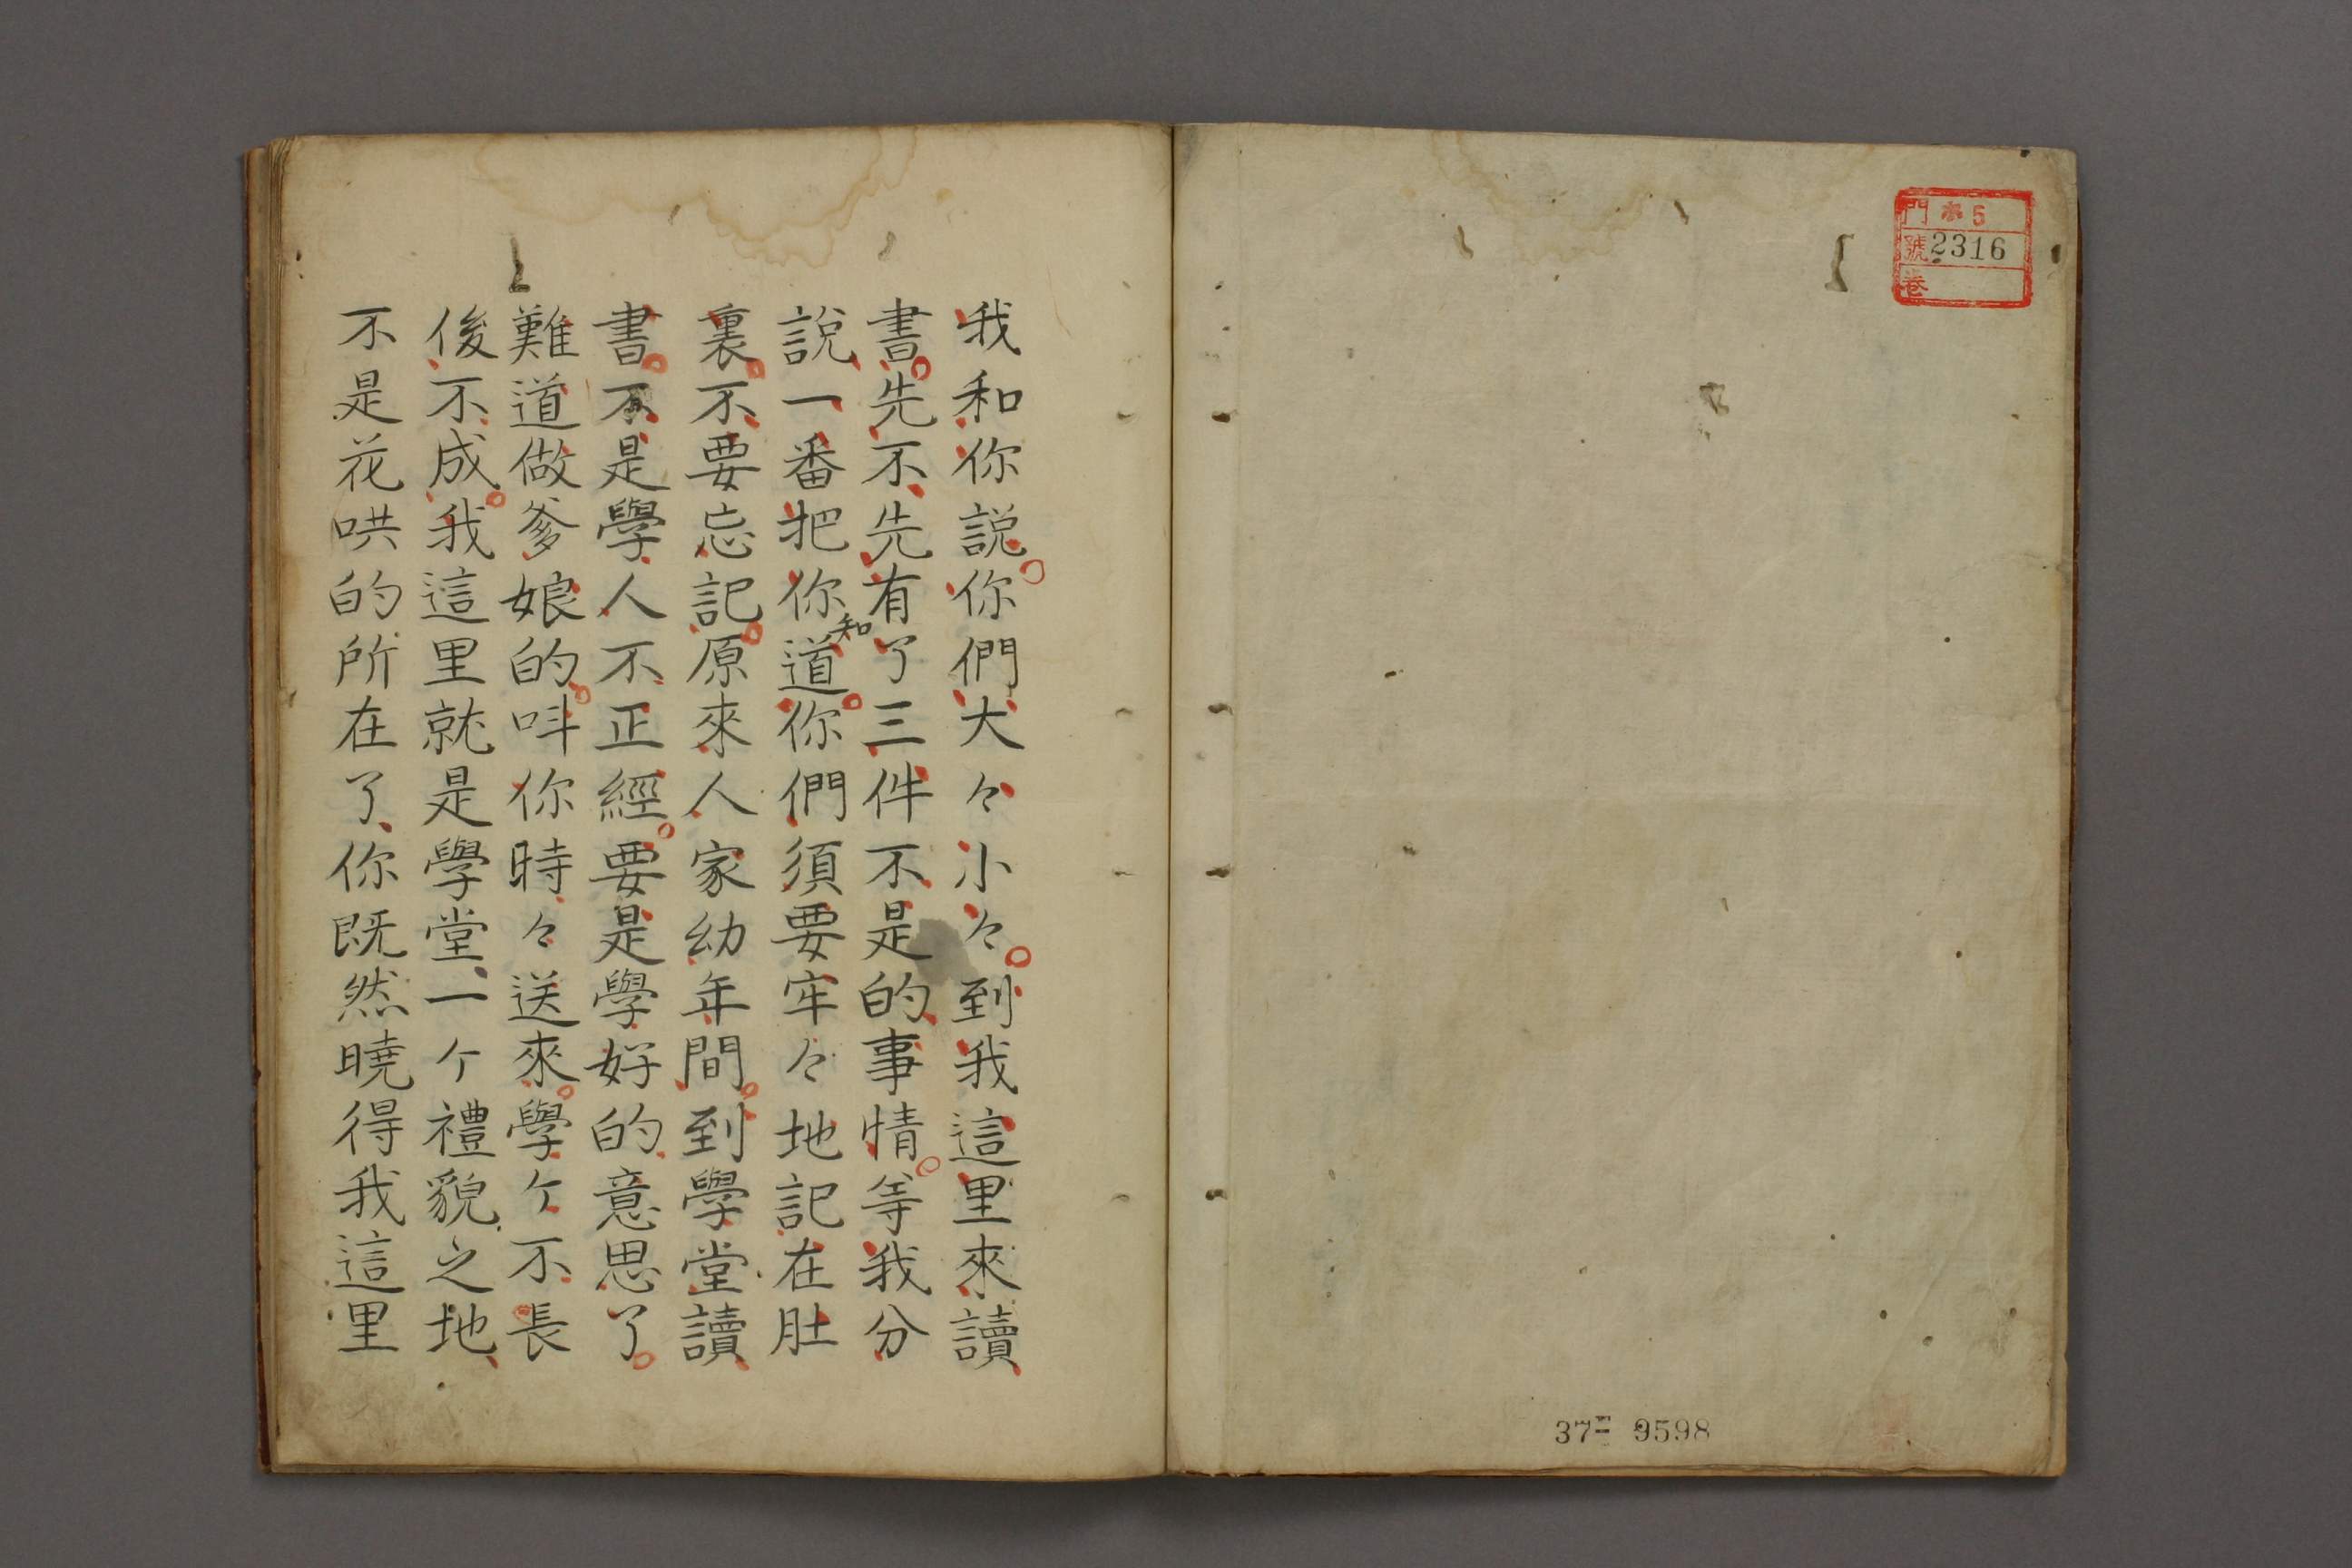 門 ホ5
號 2316
卷
37- 9598
我和你説你們大々小々到我這里來讀
書先不先有了三件不是的事情等我分
説一番把你知道你們須要牢々地記在肚
裏不要忘記原來人家幼年間到學堂讀
書不是學人不正經要是學好的意思了
難道做爹娘的呌你時々送來學ケ不長
後不成我這里就是學堂一ケ禮貌之地
不是花哄的所在了你既然曉得我這里